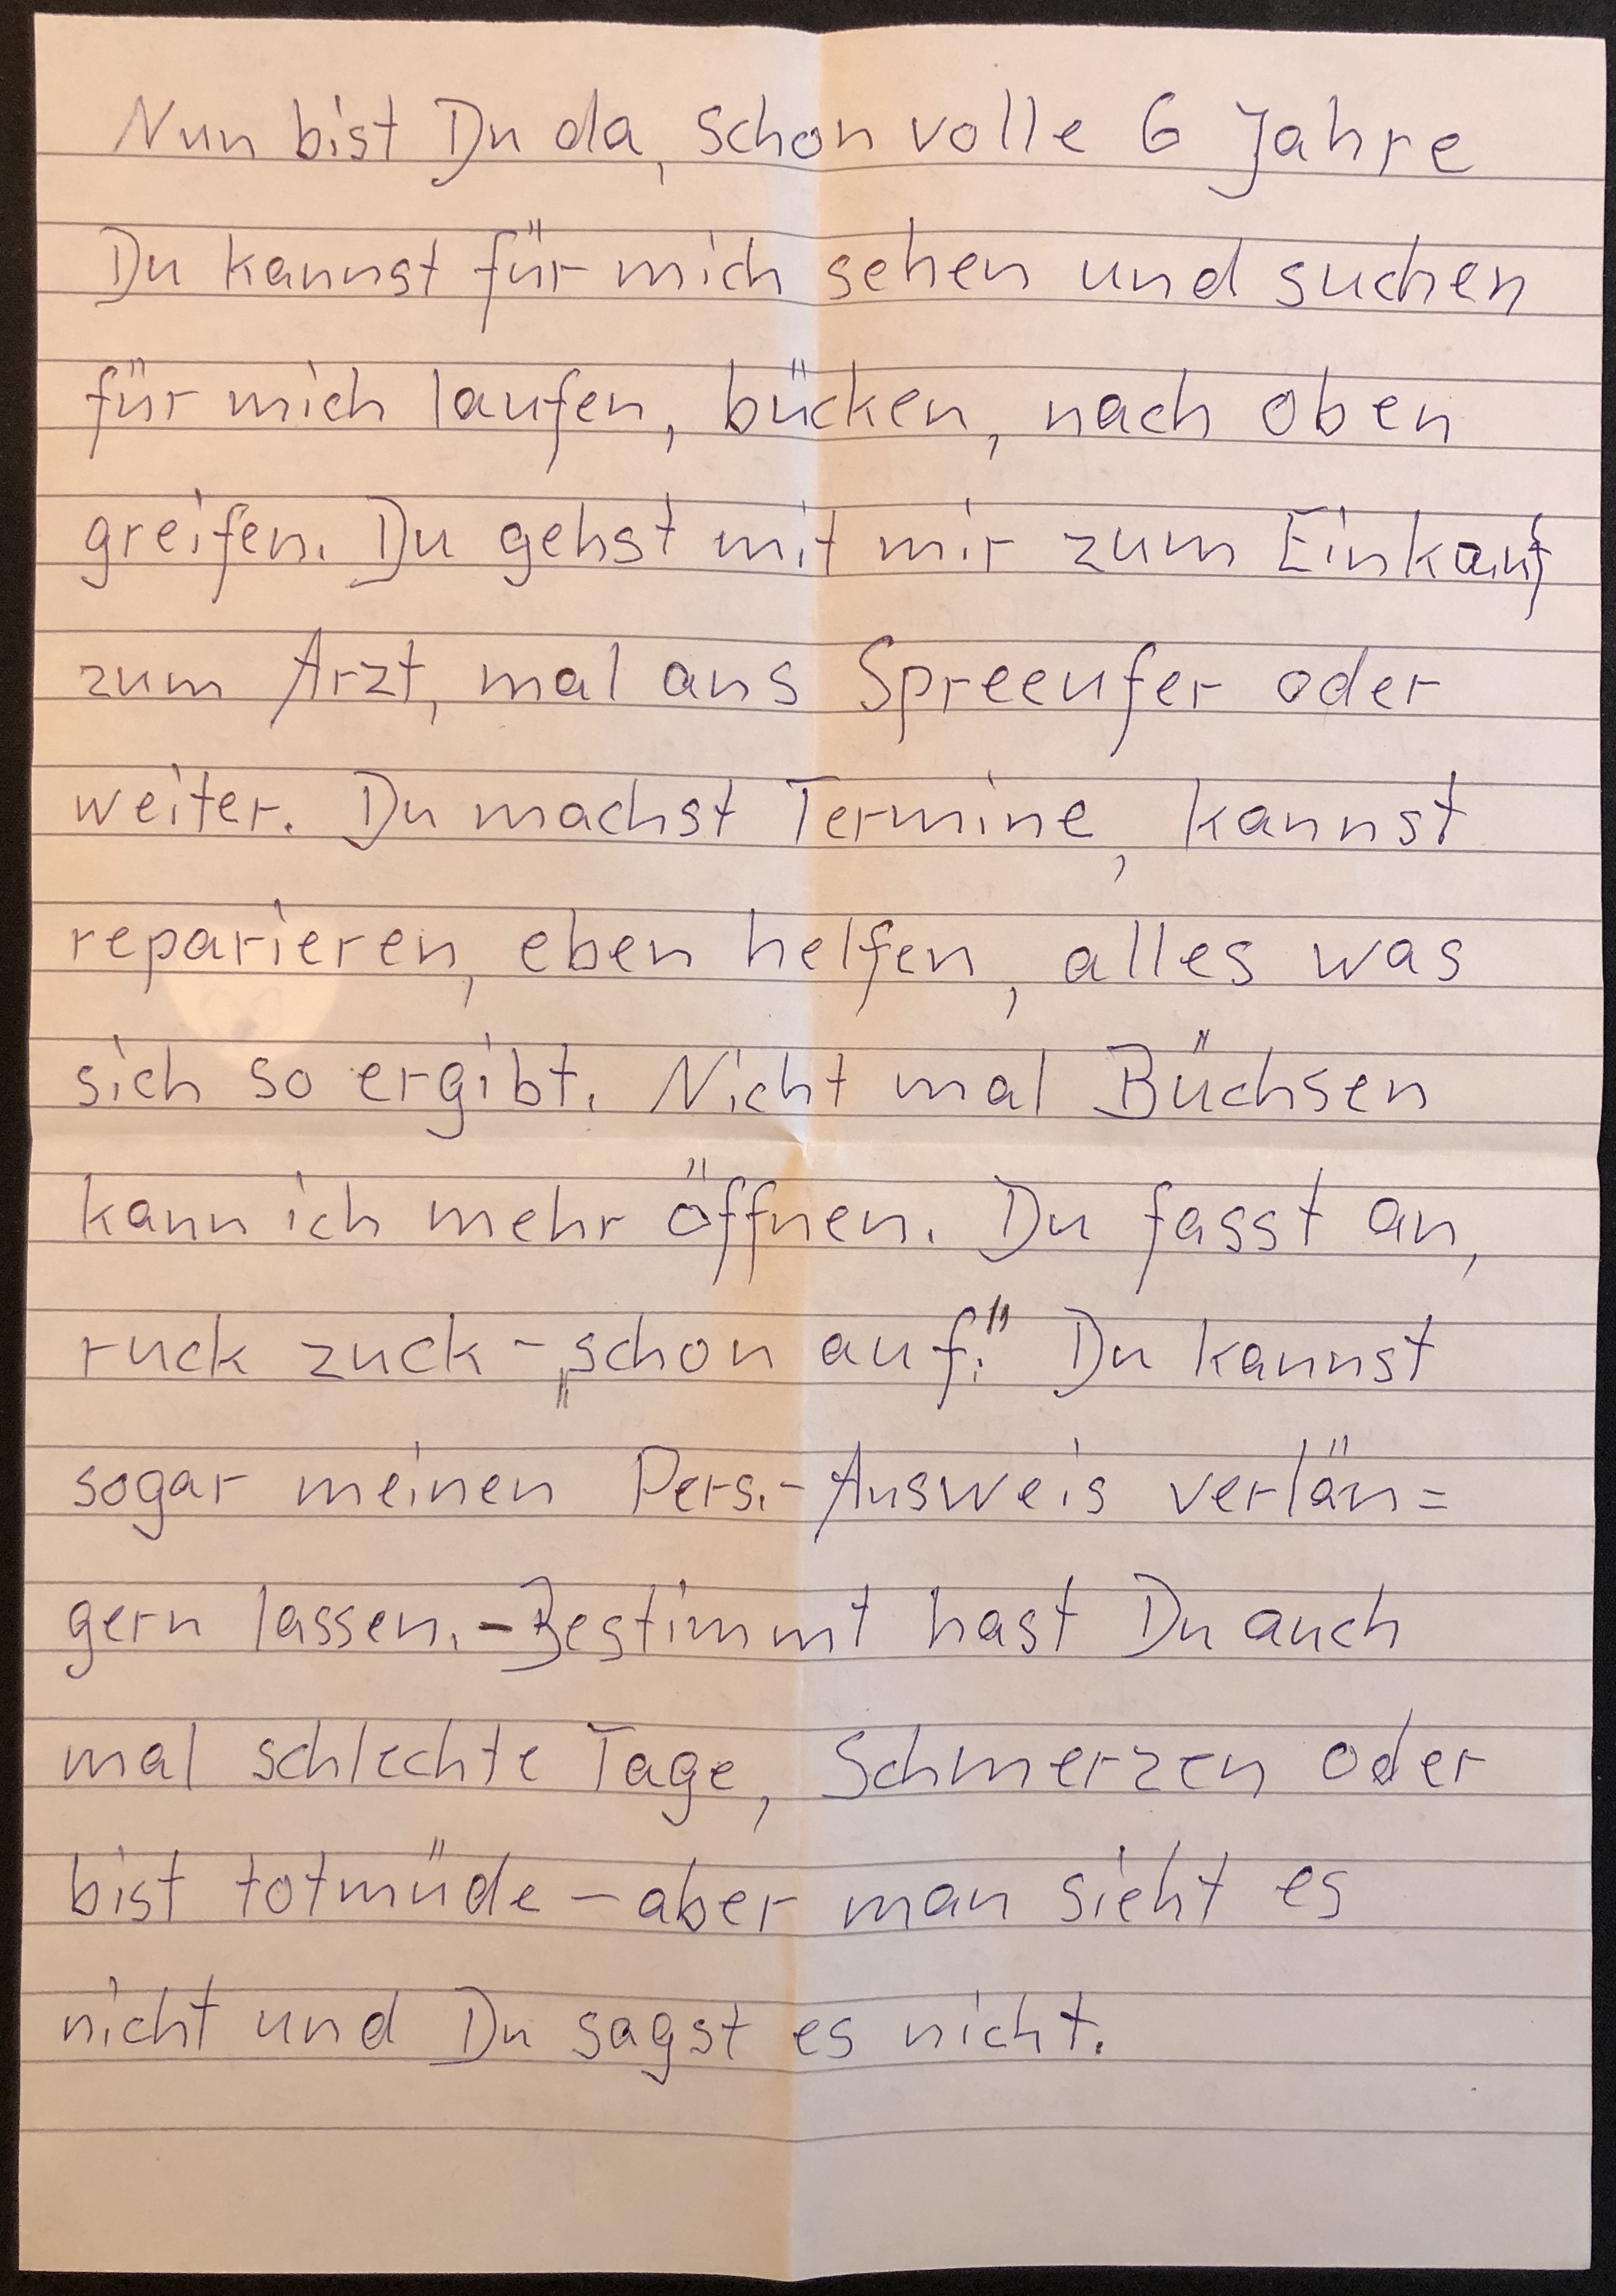 Nun bist Du da, schon volle 6 Jahre
Du kannst für mich sehen und suchen
für mich laufen, bücken, nach oben
greifen. Du gehst mit mir zum Einkauf
zum Arzt, mal ans Spreeufer oder
weiter. Du machst Termine, kannst
reparieren, eben helfen, alles was
sich so ergibt. Nicht mal Büchsen
kann ich mehr öffnen. Du fasst an,
ruck zuck - „schon auf." Du kannst
sogar meinen Pers.-Ausweis verlän=
gern lassen. - Bestimmt hast Du auch
mal schlechte Tage, Schmerzen oder
bist totmüde - aber man sieht es
nicht und Du sagst es nicht.